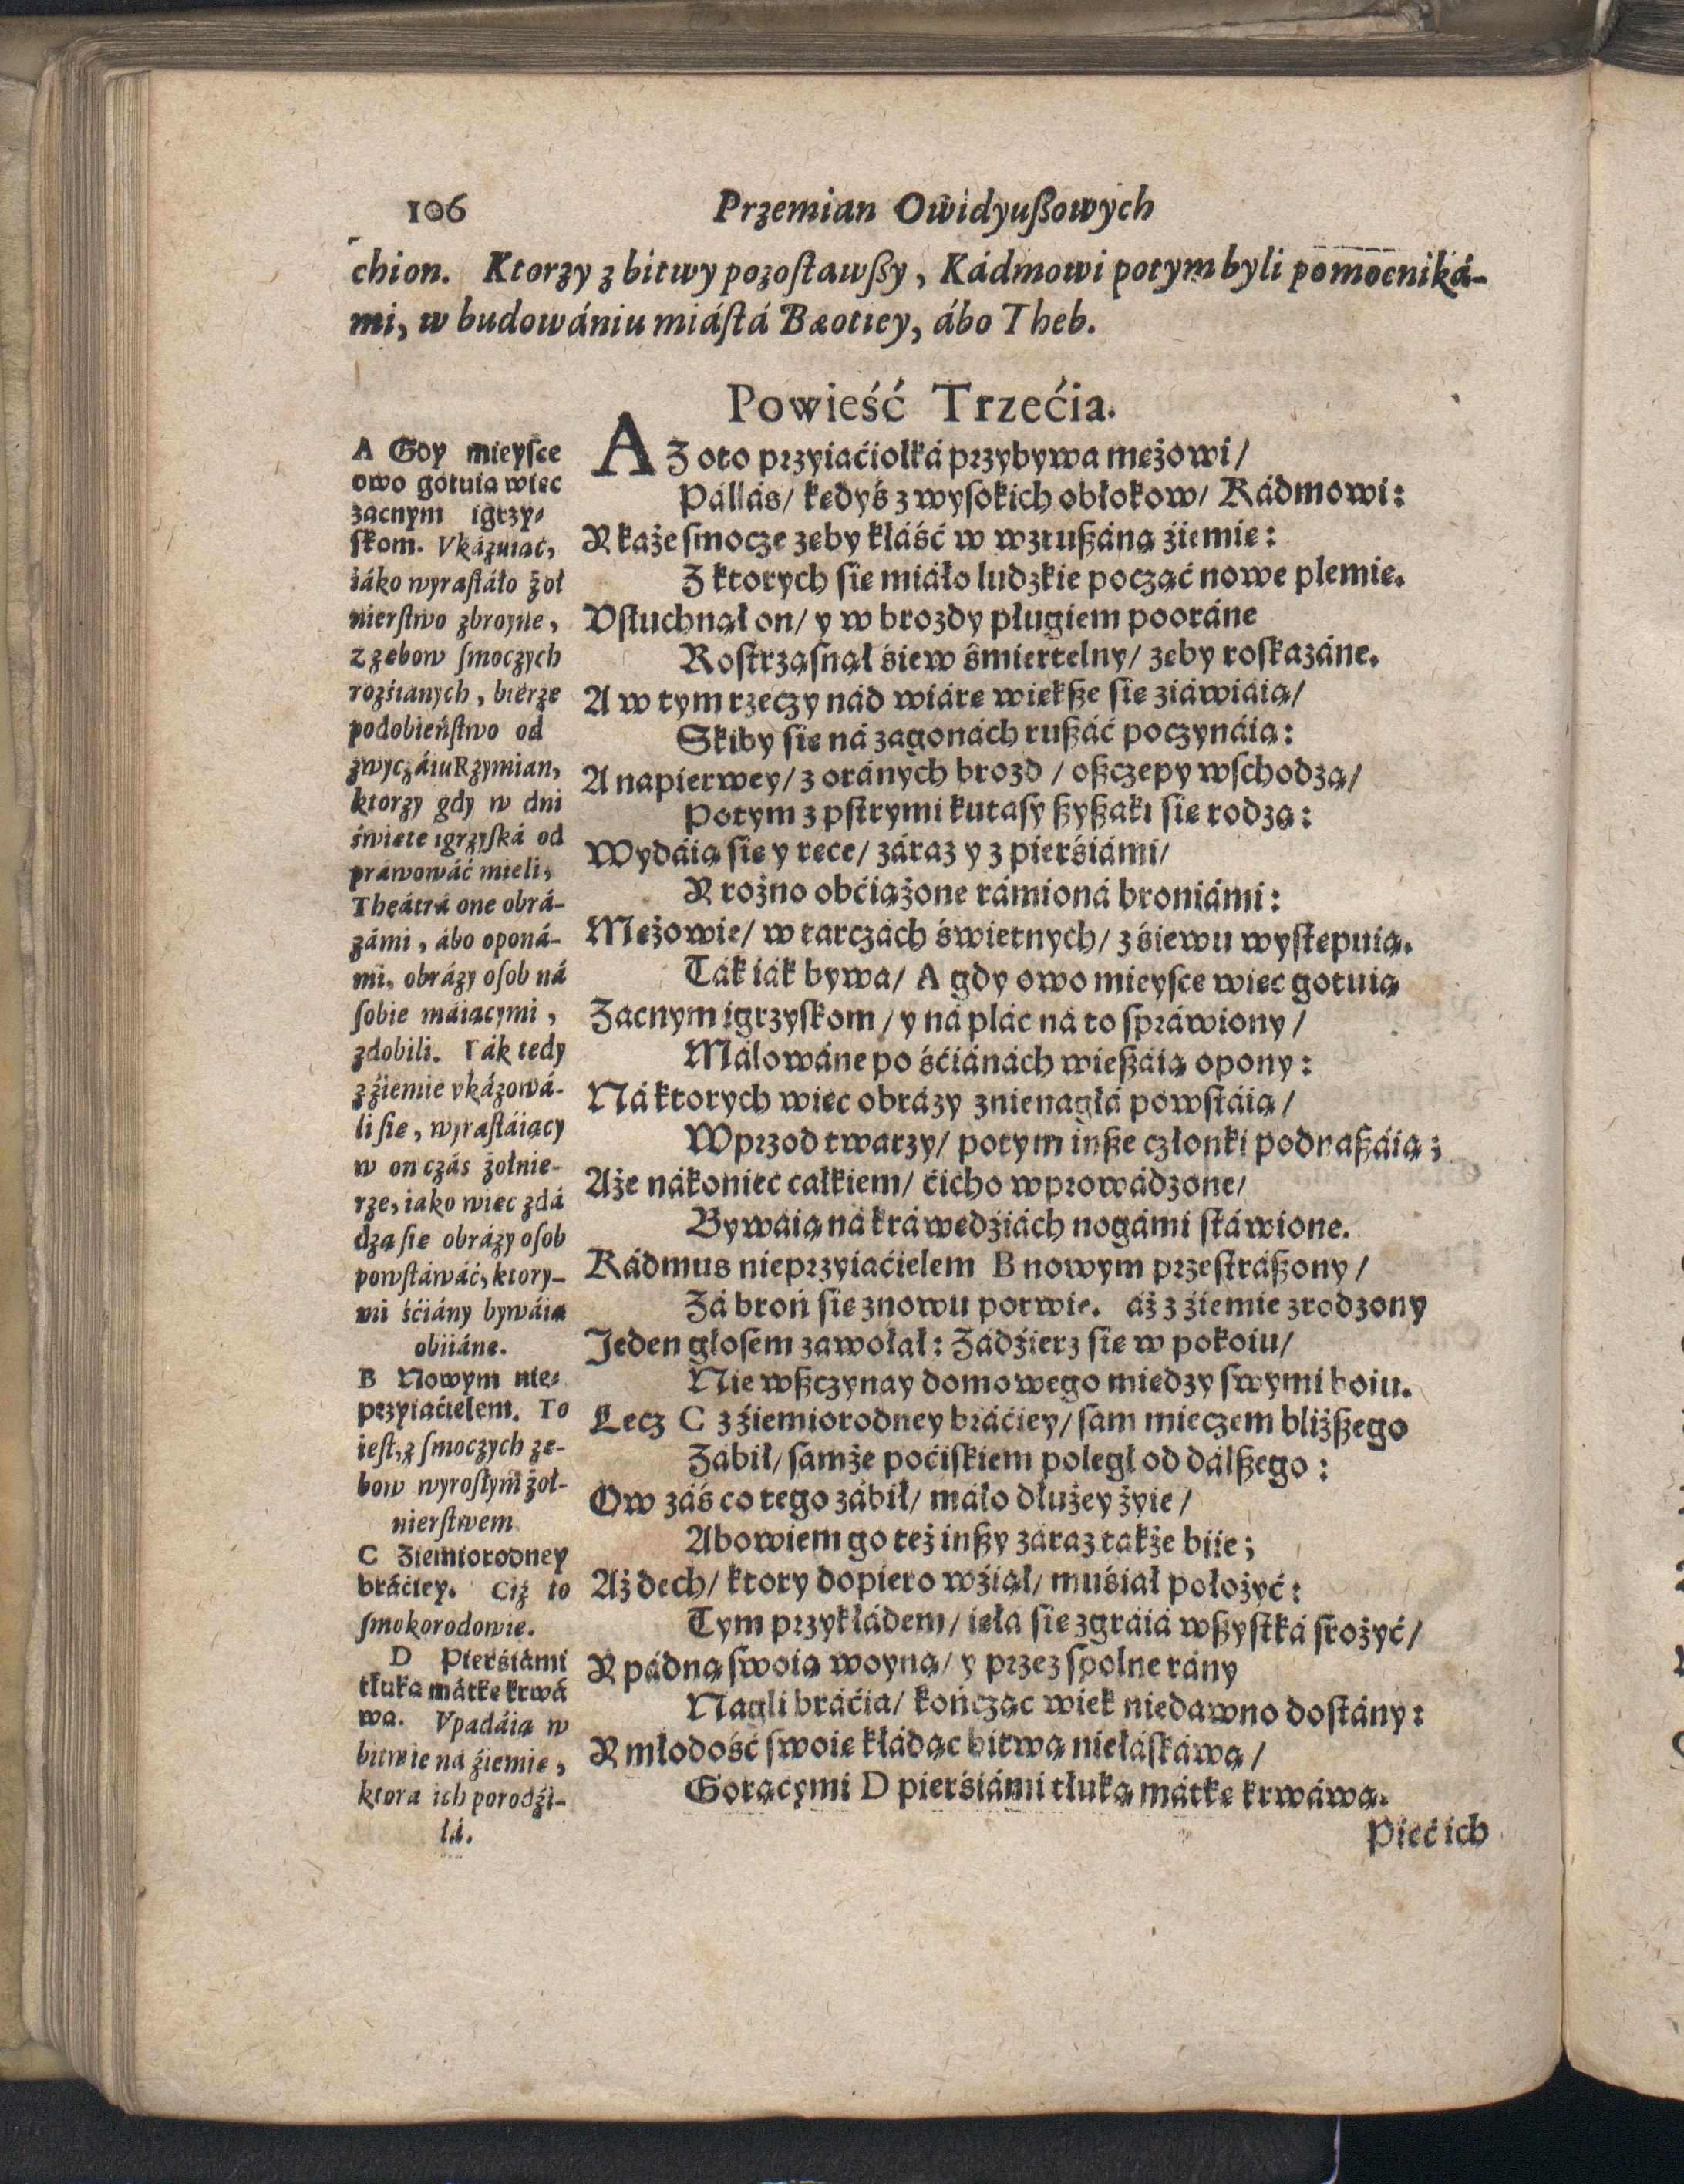 106 Przemian Owidyußowych
chion. Ktorzy z bitwy pozoſtawßy, Kádmowi potym byli pomocniká-
mi, w budowániu miáſtá Bæotiey, ábo Theb.
Powieść Trzećia.
A Gdy mieyſce
owo gotuią więc
zacnym igrzy-
ſkom. Vkázuiąc,
iáko wyraſtáło żoł
nierſtwo zbroyne,
z zębow ſmoczych
rozśianych, bierze
podobieńſtwo od
zwyczáiu Rzymian,
ktorzy gdy w dni
święte igrzyſká od
práwowáć mieli,
Theátrá one obrá-
zámi, ábo oponá-
mi, obrázy oſob ná
ſobie máiącymi,
zdobili. Ták tedy
z źiemie vkázowá-
li ſie, wyraſtáiący
w on czás żołnie-
rze, iako więc zdá
dzą ſie obrázy oſob
powſtáwáć, ktory-
mi śćiány bywáią
obiiáne.
B Nowym nie-
przyiaćielem. To
ieſt, z ſmoczych zę-
bow wyroſłym żoł-
nierſtwem
C Ziemiorodney
bráćiey. Ciż to
ſmokorodowie.
D Pierśiámi
tłuką mátkę krwá
wą. Vpadáią w
bitwie ná źiemię,
ktora ich porodźi-
łá.
AZ oto przyiaćiołká przybywa mężowi/
Pállás/ kędyś z wysokich obłokow/ Kádmowi:
Y każe ſmocze zęby kłáść w wzrußáną źiemię:
Z ktorych ſie miáło ludzkie począć nowe plemię.
Vſłuchnął on/ y w brozdy pługiem pooráne
Roſtrząſnął śiew śmiertelny/ zęby roſkazáne.
A w tym rzeczy nád wiárę więkße ſie ziáwiáią/
Skiby ſie ná zagonách rußáć poczynáią:
A napierwey/ z oránych brozd/ oßczepy wſchodzą/
Potym z pſtrymi kutaſy ßyßaki ſie rodzą:
Wydáią ſie y ręce/ záraz y z pierśiámi/
Y rożno obćiążone rámioná broniámi:
Mężowie/ w tarczách świetnych/ z śiewu wyſtępuią.
Ták iák bywa/ A gdy owo mieyſce więc gotuią
Zacnym igrzyſkom/ y ná plác ná to ſpráwiony/
Málowáne po śćiánách wießáią opony:
Ná ktorych więc obrázy znienagłá powſtáią/
Wprzod twarzy/ potym inße członki podnaßáią;
Aże nákoniec całkiem/ ćicho wprowádzone/
Bywáią ná kráwędźiách nogámi ſtáwione.
Kádmus nieprzyiaćielem B nowym przeſtráßony/
Zá broń ſie znowu porwie. áż z źiemie zrodzony
Jeden głoſem zawołał: Zádźierz ſie w pokoiu/
Nie wßczynay domowego między ſwymi boiu.
Lecz C z źiemiorodney bráćiey/ ſam mieczem bliżßego
Zábił/ ſamże poćiſkiem poległ od dálßego:
Ow záś co tego zábił/ máło dłużey żyie/
Abowiem go też inßy záraz także biie;
Aż dech/ ktory dopiero wźiął/ muśiał położyć:
Tym przykłádem/ ięłá ſie zgráiá wßyſtká ſrożyć/
Y pádną ſwoią woyną/ y przez ſpolne rány
Nagli bráćia/ kończąc wiek niedawno doſtány:
Y młodość ſwoię kłádąc bitwą niełáſkáwą/
Gorącymi D pierśiámi tłuką mátkę krwáwą.
Pięć ich